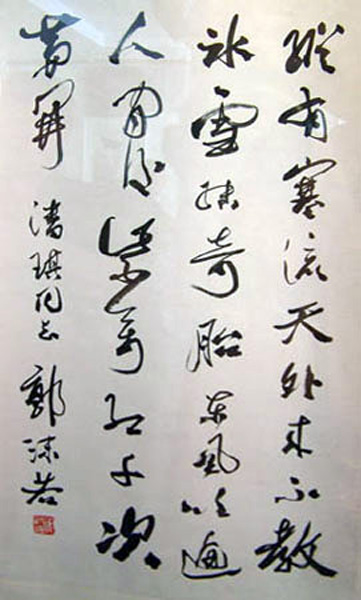 縱有寒流天外来不教
冰雪結奇胎东風吹遍
人间後紫万红千次
第開 潘琪同志 郭沫若